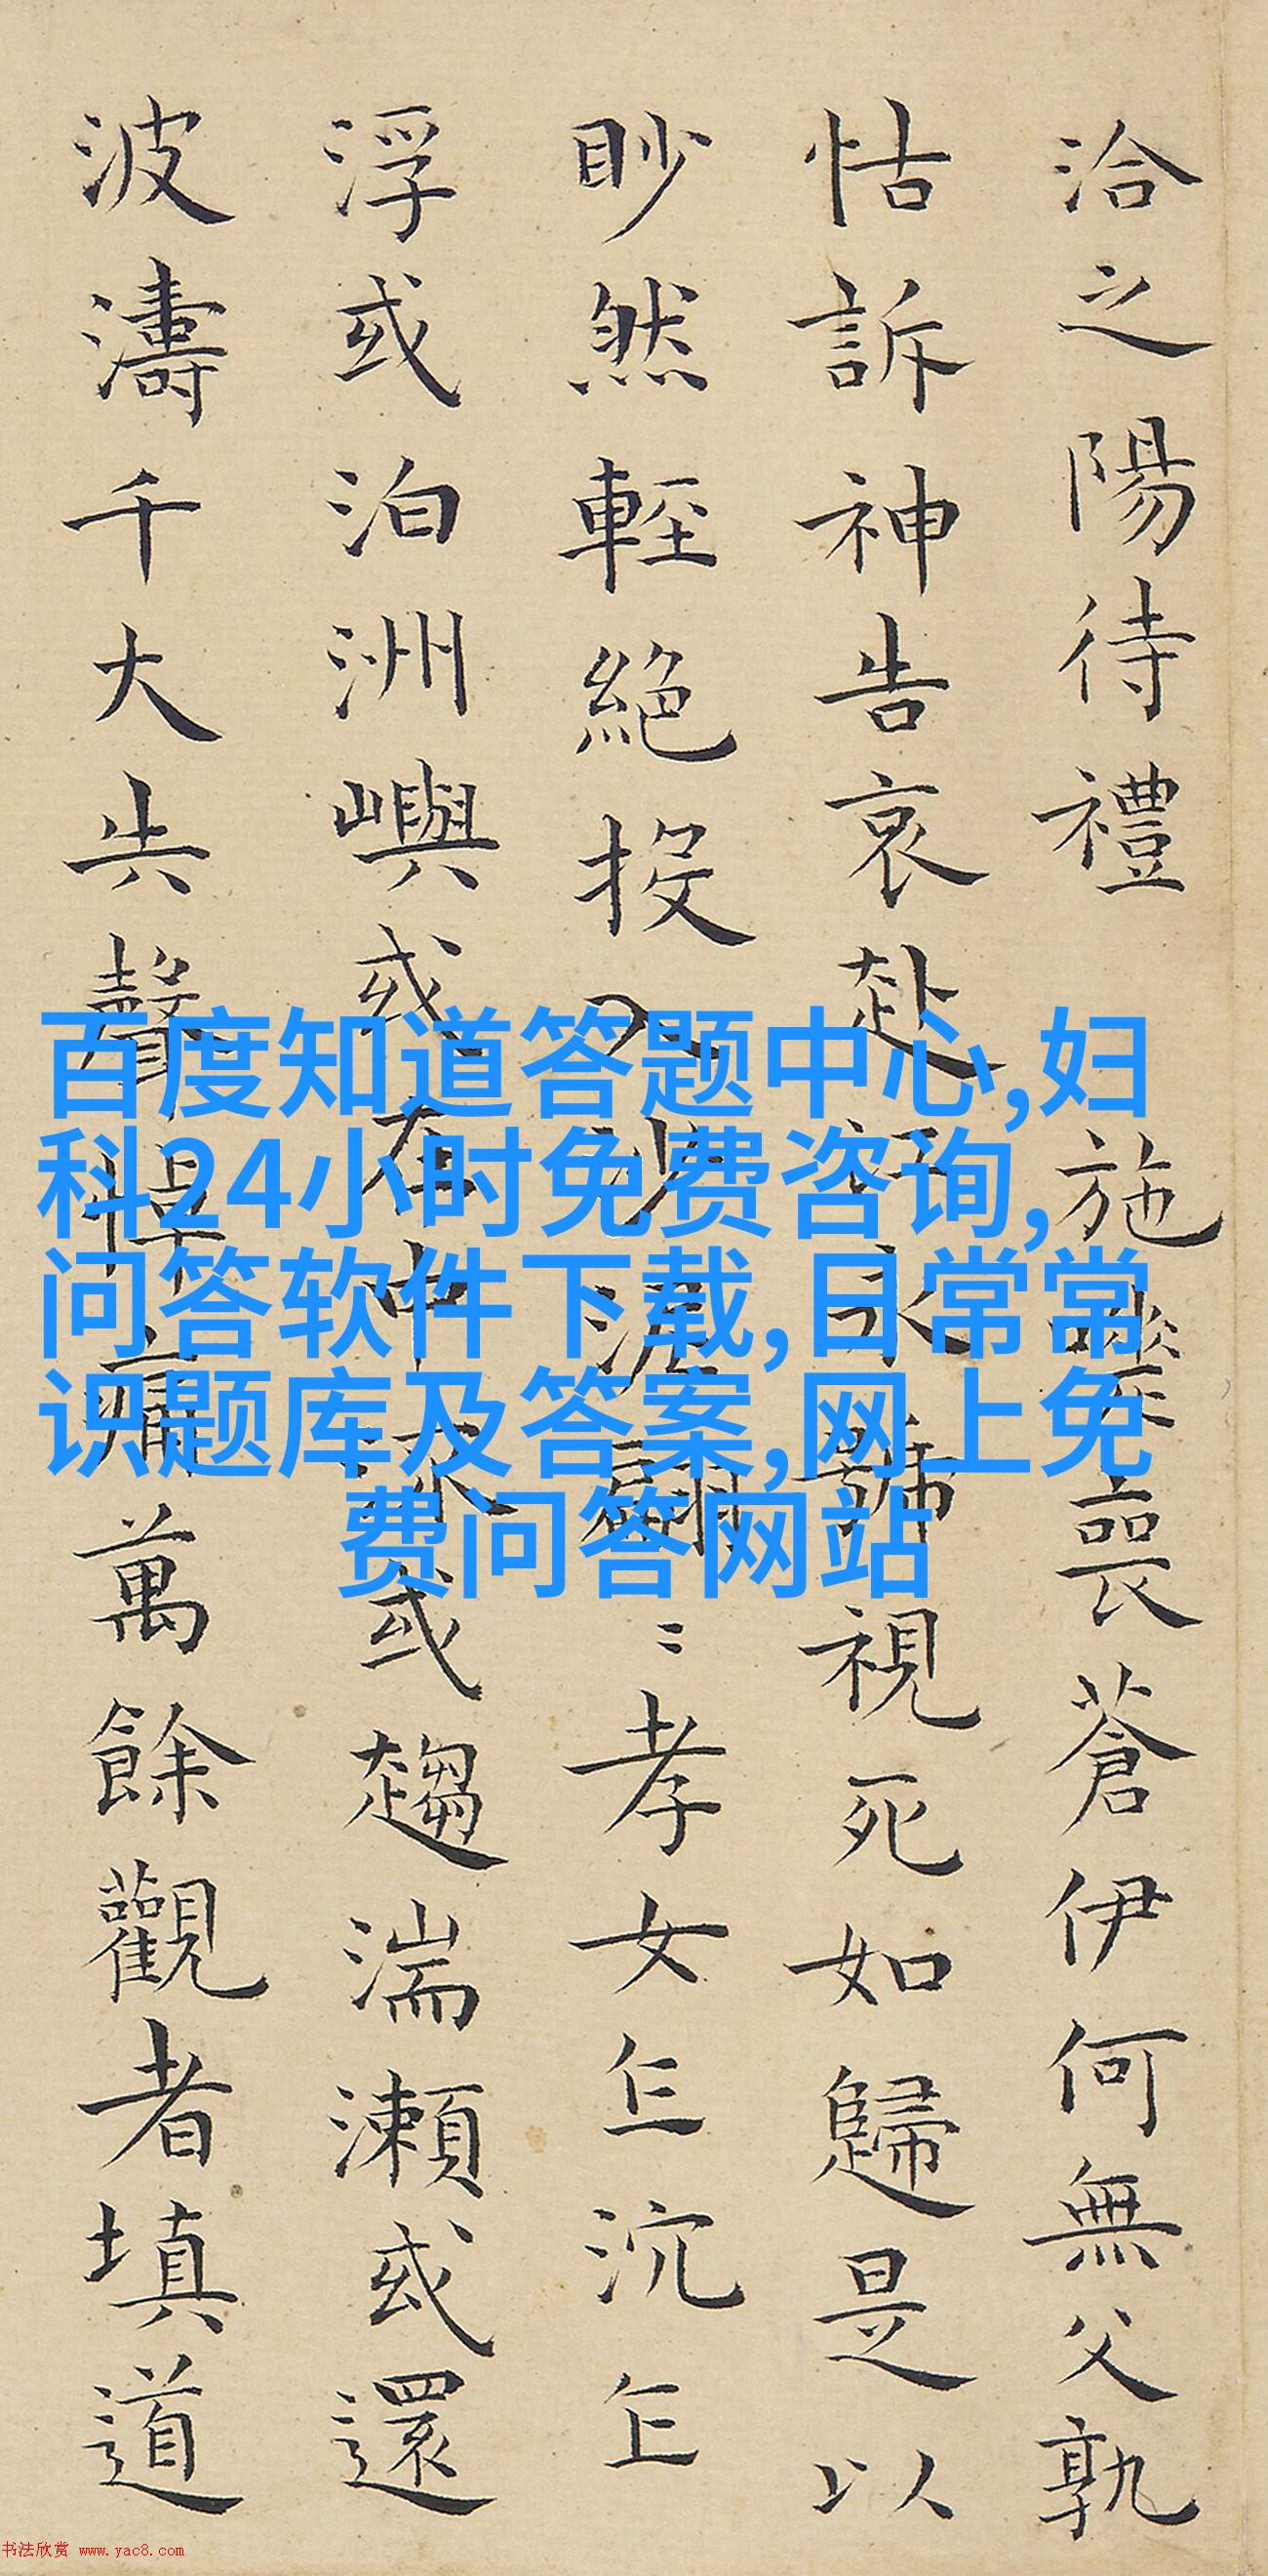 洽之陽待禮施嗟喪蒼伊何無父孰
怙訴神告哀赴江永號視死如歸是以
眇然輕絕投入沙泥翩〻孝女乍沉乍
浮或泊洲嶼或在中流或趨湍瀨或還
波濤千大失聲悼痛萬餘觀者填道
百度知道答题中心,妇
科24小时免费咨询,
问答软件下载,日常常
识题库及答案,网上免
费问答网站
书法欣赏 www.yac8.com